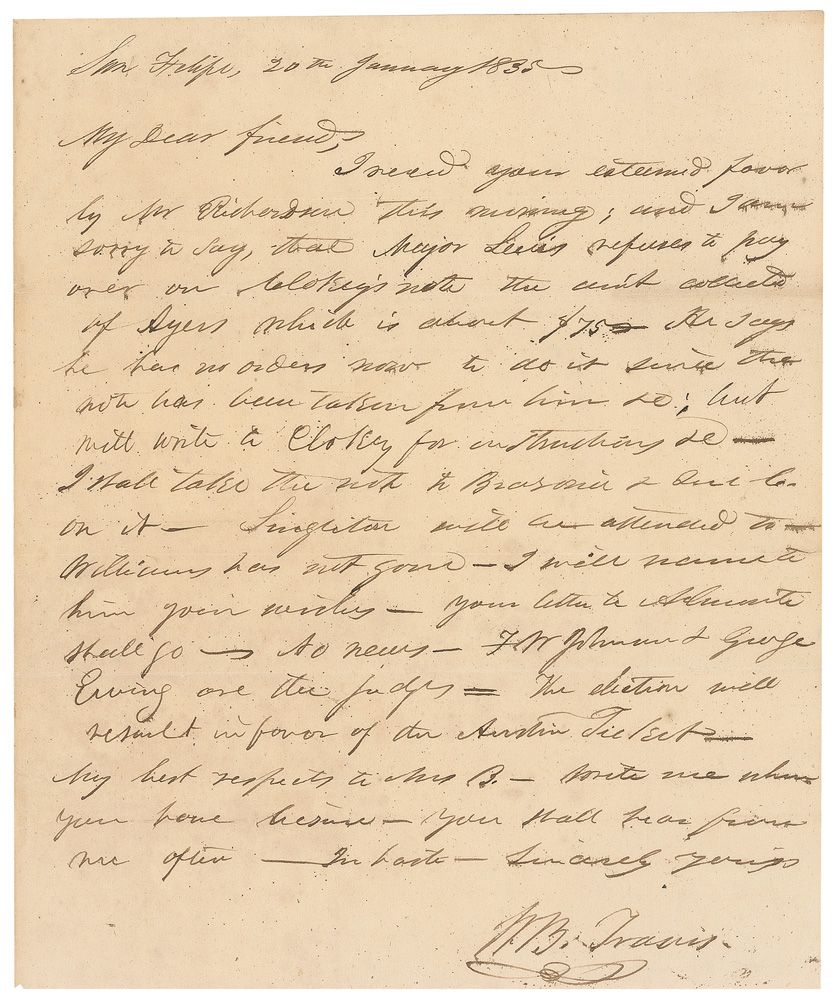 San Felipe, 20th January 1835
My Dear friend,
I recd your esteemed favor
by Mr Richardson this morning; and I am
sorry to say, that Major Lewis refuses to pay
over on Clokey's note the amt collected
of Ayers which is about $75 He says
he has no orders now to do it since the
note has been taken from him &c; but
will write to Clokey for instructions &c —
I shall take the note to Brazoria & sue
on it — Singleton will be attended to —
Williams has not gone — I will name to
him your wishes — your letter to Almonte
shall go — No news — F W Johnson & George
Ewing are the judges = The election will
result in favor of the Austin Ticket —
My best respects to Mrs B. — Write me when
you have leisure — you shall hear from
me often — In haste — Sincerely yours
W B. Travis